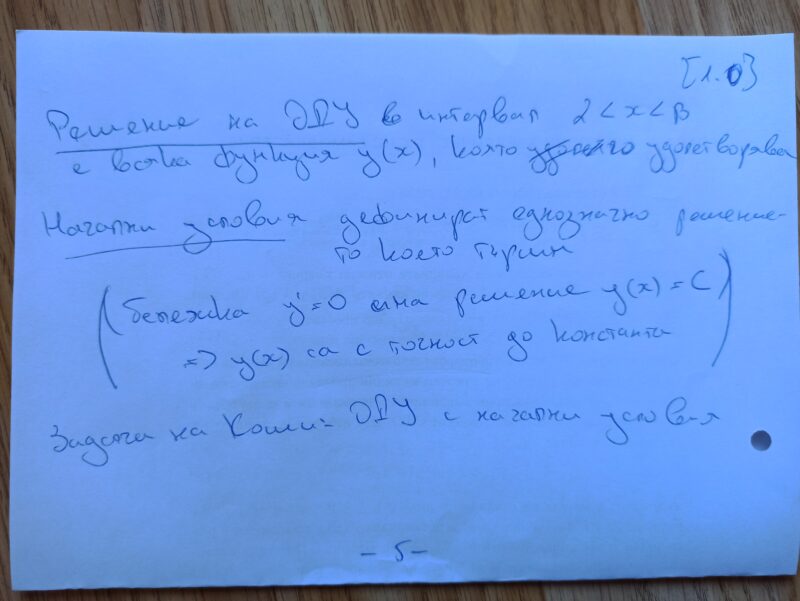 [1.0]
Решение на ОДУ в интервал α < x < β
е всяка функция y(x), която удовлетворява
Начални условия дефинират еднозначно решение-
то което търсим
(бележка y' = 0 има решение y(x) = C
=> y(x) са с точност до константа)
Задача на Коши = ОДУ с начални условия
- 5 -